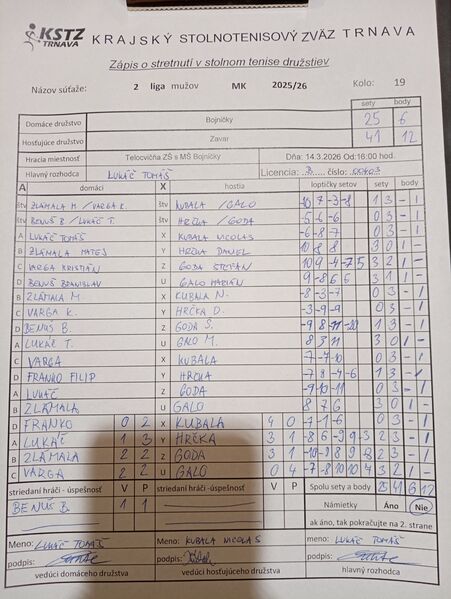 KSTZ
TRNAVA
KRAJSKÝ STOLNOTENISOVÝ ZVÄZ TRNAVA
Zápis o stretnutí v stolnom tenise družstiev
Názov súťaže: 2 liga mužov MK 2025/26 Kolo: 19
sety body
Domáce družstvo Bojničky 25 6
Hosťujúce družstvo Zavar 41 12
Hracia miestnosť Telocvičňa ZŠ s MŠ Bojničky Dňa: 14.3.2026 Od:16:00 hod.
Hlavný rozhodca LUKÁČ TOMÁŠ Licencia: D číslo:
A domáci X hostia loptičky setov sety body
štv ZLÁMALA M. / VARGA K. štv KUBALA / GALO -10 7 -3 -8 1 3 - 1
štv BENUŠ B. / LUKÁČ T. štv HRČKA / GODA -5 -6 -6 0 3 - 1
A LUKÁČ TOMÁŠ X KUBALA NICOLAS -6 -8 -7 0 3 - 1
B ZLÁMALA MATEJ Y HRČKA DANIEL 10 8 8 3 0 1 -
C VARGA KRISTIÁN Z GODA ŠTEFAN 10 9 -4 -7 5 3 2 1 -
D BENUŠ BRANISLAV U GALO MARIÁN 9 -8 6 5 3 1 1 -
B ZLÁMALA M X KUBALA N. -8 -3 -7 0 3 - 1
C VARGA K. Y HRČKA D. -3 -9 -9 0 3 - 1
D BENUŠ B. Z GODA Š. -9 8 -11 -20 1 3 - 1
A LUKÁČ T. U GALO M. 8 3 11 3 0 1 -
C VARGA X KUBALA -7 -7 -10 0 3 - 1
D FRANKO FILIP Y HRČKA -7 8 -9 -6 1 3 - 1
A LUKÁČ Z GODA -9 -10 -11 0 3 - 1
B ZLÁMALA U GALO 8 7 6 3 0 1 -
D FRANKO 0 2 X KUBALA 4 0 -7 -1 -6 0 3 - 1
A LUKÁČ 1 3 Y HRČKA 3 1 -8 6 -9 9 -3 2 3 - 1
B ZLÁMALA 2 2 Z GODA 3 1 2 3 - 1
C VARGA 2 2 U GALO 0 4 -7 -8 10 10 7 3 2 1 -
striedaní hráči - úspešnosť V P striedaní hráči - úspešnosť V P Spolu sety a body 25 41 6 12
BENUŠ B. 1 1 Námietky Áno Nie
ak áno, tak pokračujte na 2. strane
Meno: LUKÁČ TOMÁŠ Meno: KUBALA NICOLAS Meno: LUKÁČ TOMÁŠ
podpis: podpis: podpis:
vedúci domáceho družstva vedúci hosťujúceho družstva hlavný rozhodca